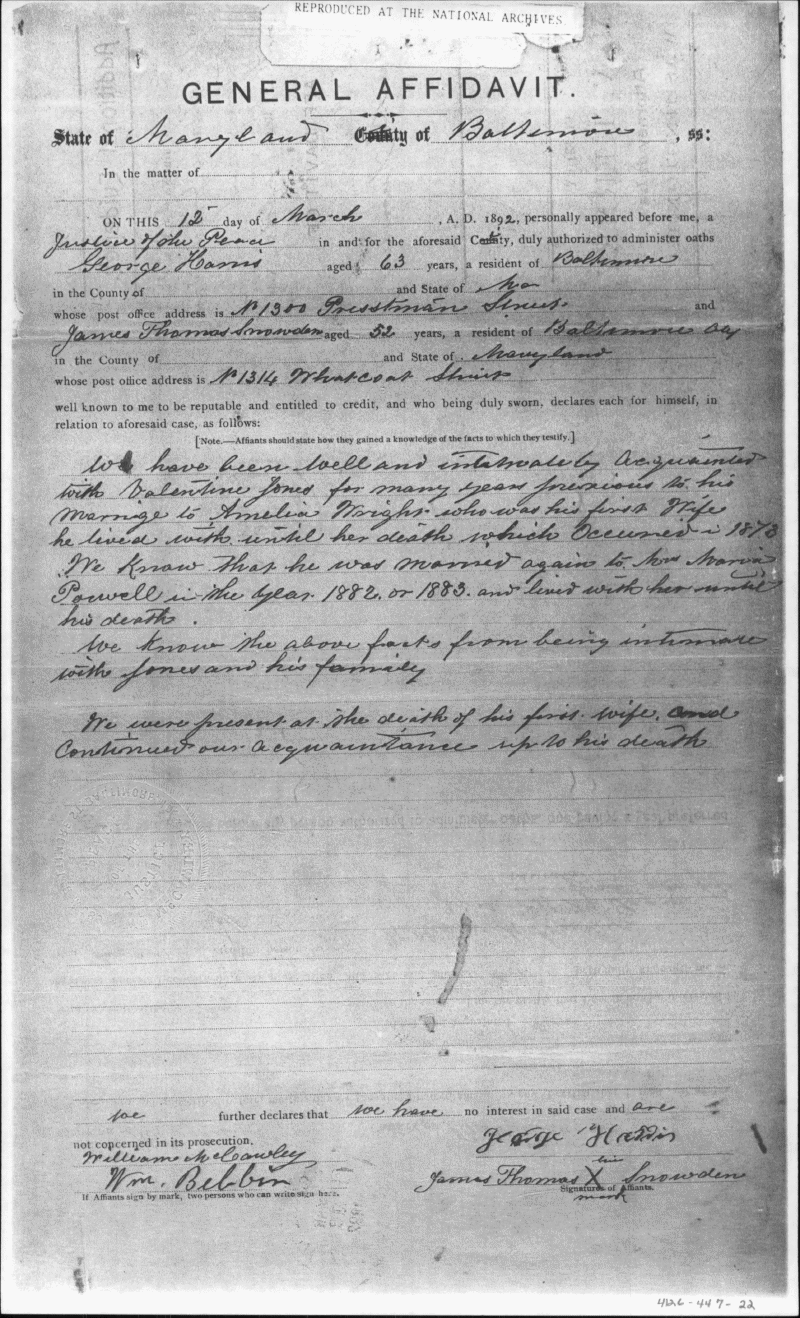 REPRODUCED AT THE NATIONAL ARCHIVES
GENERAL AFFIDAVIT.
State of Maryland County of Baltimore, ss:
In the matter of
ON THIS 12 day of March, A. D. 1892, personally appeared before me, a
Justice of the Peace in and for the aforesaid County, duly authorized to administer oaths
George Harris aged 63 years, a resident of Baltimore
in the County of and State of Md
whose post office address is No 1300 Presstman Street and
James Thomas Snowden aged 52 years, a resident of Baltimore City
in the County of and State of Maryland
whose post office address is No 1314 Whatcoat Street
well known to me to be reputable and entitled to credit, and who being duly sworn, declares each for himself, in
relation to aforesaid case, as follows:
[Note.—Affiants should state how they gained a knowledge of the facts to which they testify.]
We have been well and intimately acquainted
with Valentine Jones for many years previous to his
Marriage to Amelia Wright who was his first Wife
he lived with until her death which Occurred i 1873
We Know that he was married again to Mrs Maria
Powell in the Year 1882. or 1883. and lived with her until
his death.
We Know the above facts from being intimate
with Jones and his family
We were present at the death of his first wife. and
Continued our acquaintance up to his death
we further declares that we have no interest in said case and are
not concerned in its prosecution.
George Harris
William McCawley
Wm. Bebbin
James Thomas his X mark Snowden
If Affiants sign by mark, two persons who can write sign here.
Signatures of Affiants.
426-447-22